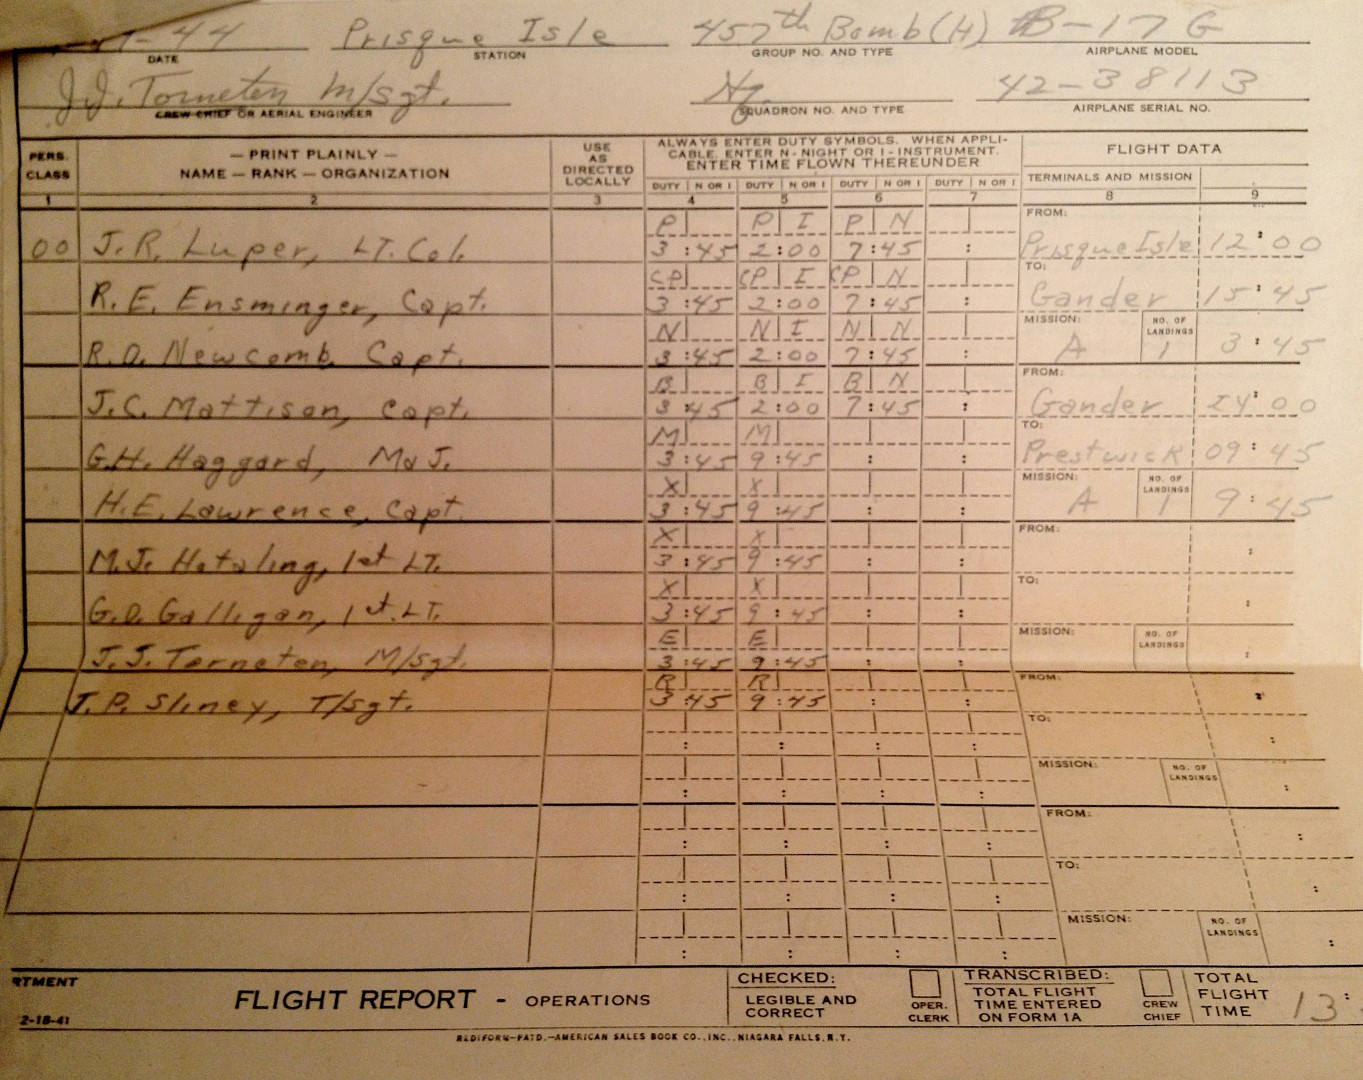 -44 Prisque Isle 457th Bomb(H) B-17 G
DATE STATION GROUP NO. AND TYPE AIRPLANE MODEL
J.J. Torneten M/sgt. Hq. 42-38113
CREW CHIEF OR AERIAL ENGINEER SQUADRON NO. AND TYPE AIRPLANE SERIAL NO.
PERS. CLASS
— PRINT PLAINLY —
NAME — RANK — ORGANIZATION
USE AS DIRECTED LOCALLY
ALWAYS ENTER DUTY SYMBOLS. WHEN APPLI-
CABLE, ENTER N-NIGHT OR I-INSTRUMENT.
ENTER TIME FLOWN THEREUNDER
FLIGHT DATA
TERMINALS AND MISSION
DUTY N OR I DUTY N OR I DUTY N OR I DUTY N OR I
1 2 3 4 5 6 7 8 9
P P I P N FROM:
00 J.R. Luper, LT. Col. 3:45 2:00 7:45 : Prisque Isle 12:00
CP CP I CP N TO:
R.E. Ensminger, Capt. 3:45 2:00 7:45 : Gander 15:45
N N I N N MISSION: NO. OF LANDINGS
R.D. Newcomb, Capt. 3:45 2:00 7:45 : A 1 3:45
B B I B N FROM:
J.C. Mattison, Capt. 3:45 2:00 7:45 : Gander 24:00
M M TO:
G.H. Haggard, Maj. 3:45 9:45 : : Prestwick 09:45
X X MISSION: NO. OF LANDINGS
H.E. Lawrence, Capt 3:45 9:45 : : A 1 9:45
X X FROM:
M.J. Hotaling, 1st LT. 3:45 9:45 : : :
X X TO:
G.D. Galligan, 1st. LT. 3:45 9:45 : : :
E E MISSION: NO. OF LANDINGS
J.J. Torneten, M/sgt. 3:45 9:45 : : :
R R FROM:
J.P. Sliney, T/sgt. 3:45 9:45 : : :
TO:
: : : : :
MISSION: NO. OF LANDINGS
: : : : :
FROM:
: : : : :
TO:
: : : : :
MISSION: NO. OF LANDINGS
: : : : :
RTMENT
2-18-41
FLIGHT REPORT - OPERATIONS
CHECKED:
LEGIBLE AND CORRECT
OPER. CLERK
TRANSCRIBED:
TOTAL FLIGHT TIME ENTERED ON FORM 1A
CREW CHIEF
TOTAL FLIGHT TIME 13:
REDIFORM—PATD.—AMERICAN SALES BOOK CO., INC., NIAGARA FALLS, N.Y.